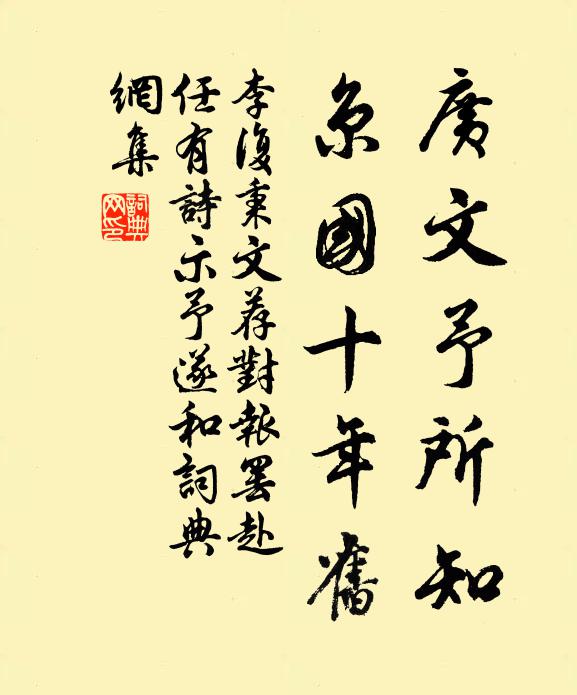 廣文予所知
京國十年舊
李復秉文荐對報罢赴
任有詩示予遂和詞典
網集
詞典
网印